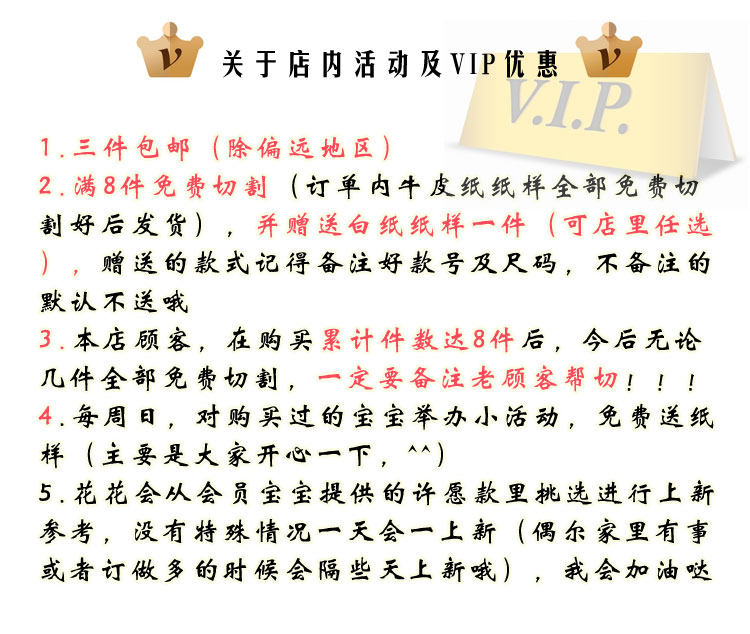 V
关于店内活动及VIP优惠
V
V.I.P.
1.三件包邮（除偏远地区）
2.满8件免费切割（订单内牛皮纸纸样全部免费切
割好后发货），并赠送白纸纸样一件（可店里任选
），赠送的款式记得备注好款号及尺码，不备注的
默认不送哦
3.本店顾客，在购买累计件数达8件后，今后无论
几件全部免费切割，一定要备注老顾客帮切！！！
4.每周日，对购买过的宝宝举办小活动，免费送纸
样（主要是大家开心一下，^^）
5.花花会从会员宝宝提供的许愿款里挑选进行上新
参考，没有特殊情况一天会一上新（偶尔家里有事
或者订做多的时候会隔些天上新哦），我会加油哒